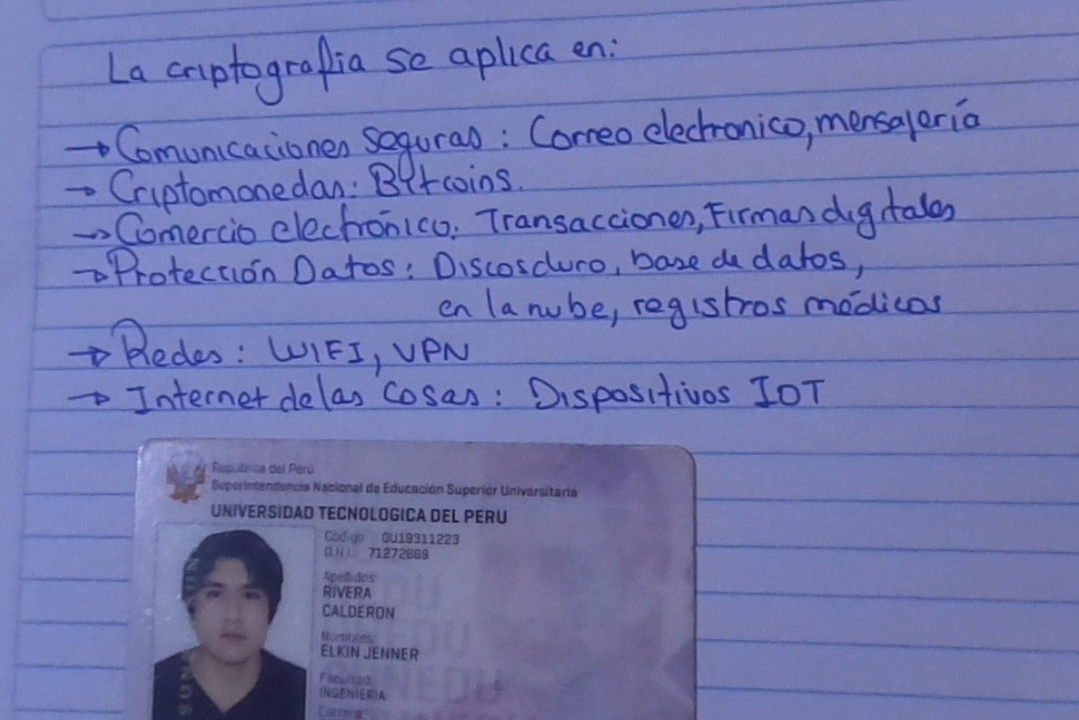 La criptografia se aplica en:
→ Comunicaciones seguras: Correo electronico, mensajería
→ Criptomonedas: Bitcoins.
→ Comercio electrónico: Transacciones, Firmas digitales
→ Protección Datos: Discos duro, base de datos,
en la nube, registros médicos
→ Redes: WIFI, VPN
→ Internet de las cosas: Dispositivos IOT
República del Perú
Superintendencia Nacional de Educación Superior Universitaria
UNIVERSIDAD TECNOLOGICA DEL PERU
Código 0U19311223
D.N.I. 71272869
Apellidos
RIVERA
CALDERON
Nombres
ELKIN JENNER
Facultad
INGENIERIA
Carrera